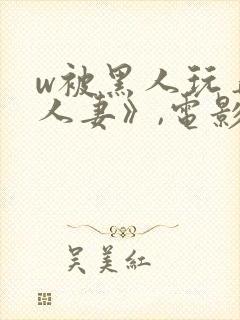 w被黑人玩
人妻》,電影
吴美紅